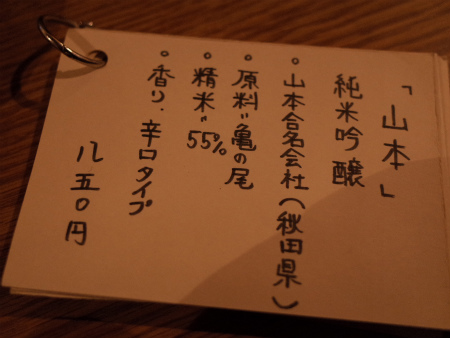 「山本」
純米吟醸
。山本合名会社(秋田県)
。原料〃亀の尾
。精米〃55%
。香り、辛口タイプ
八五〇円